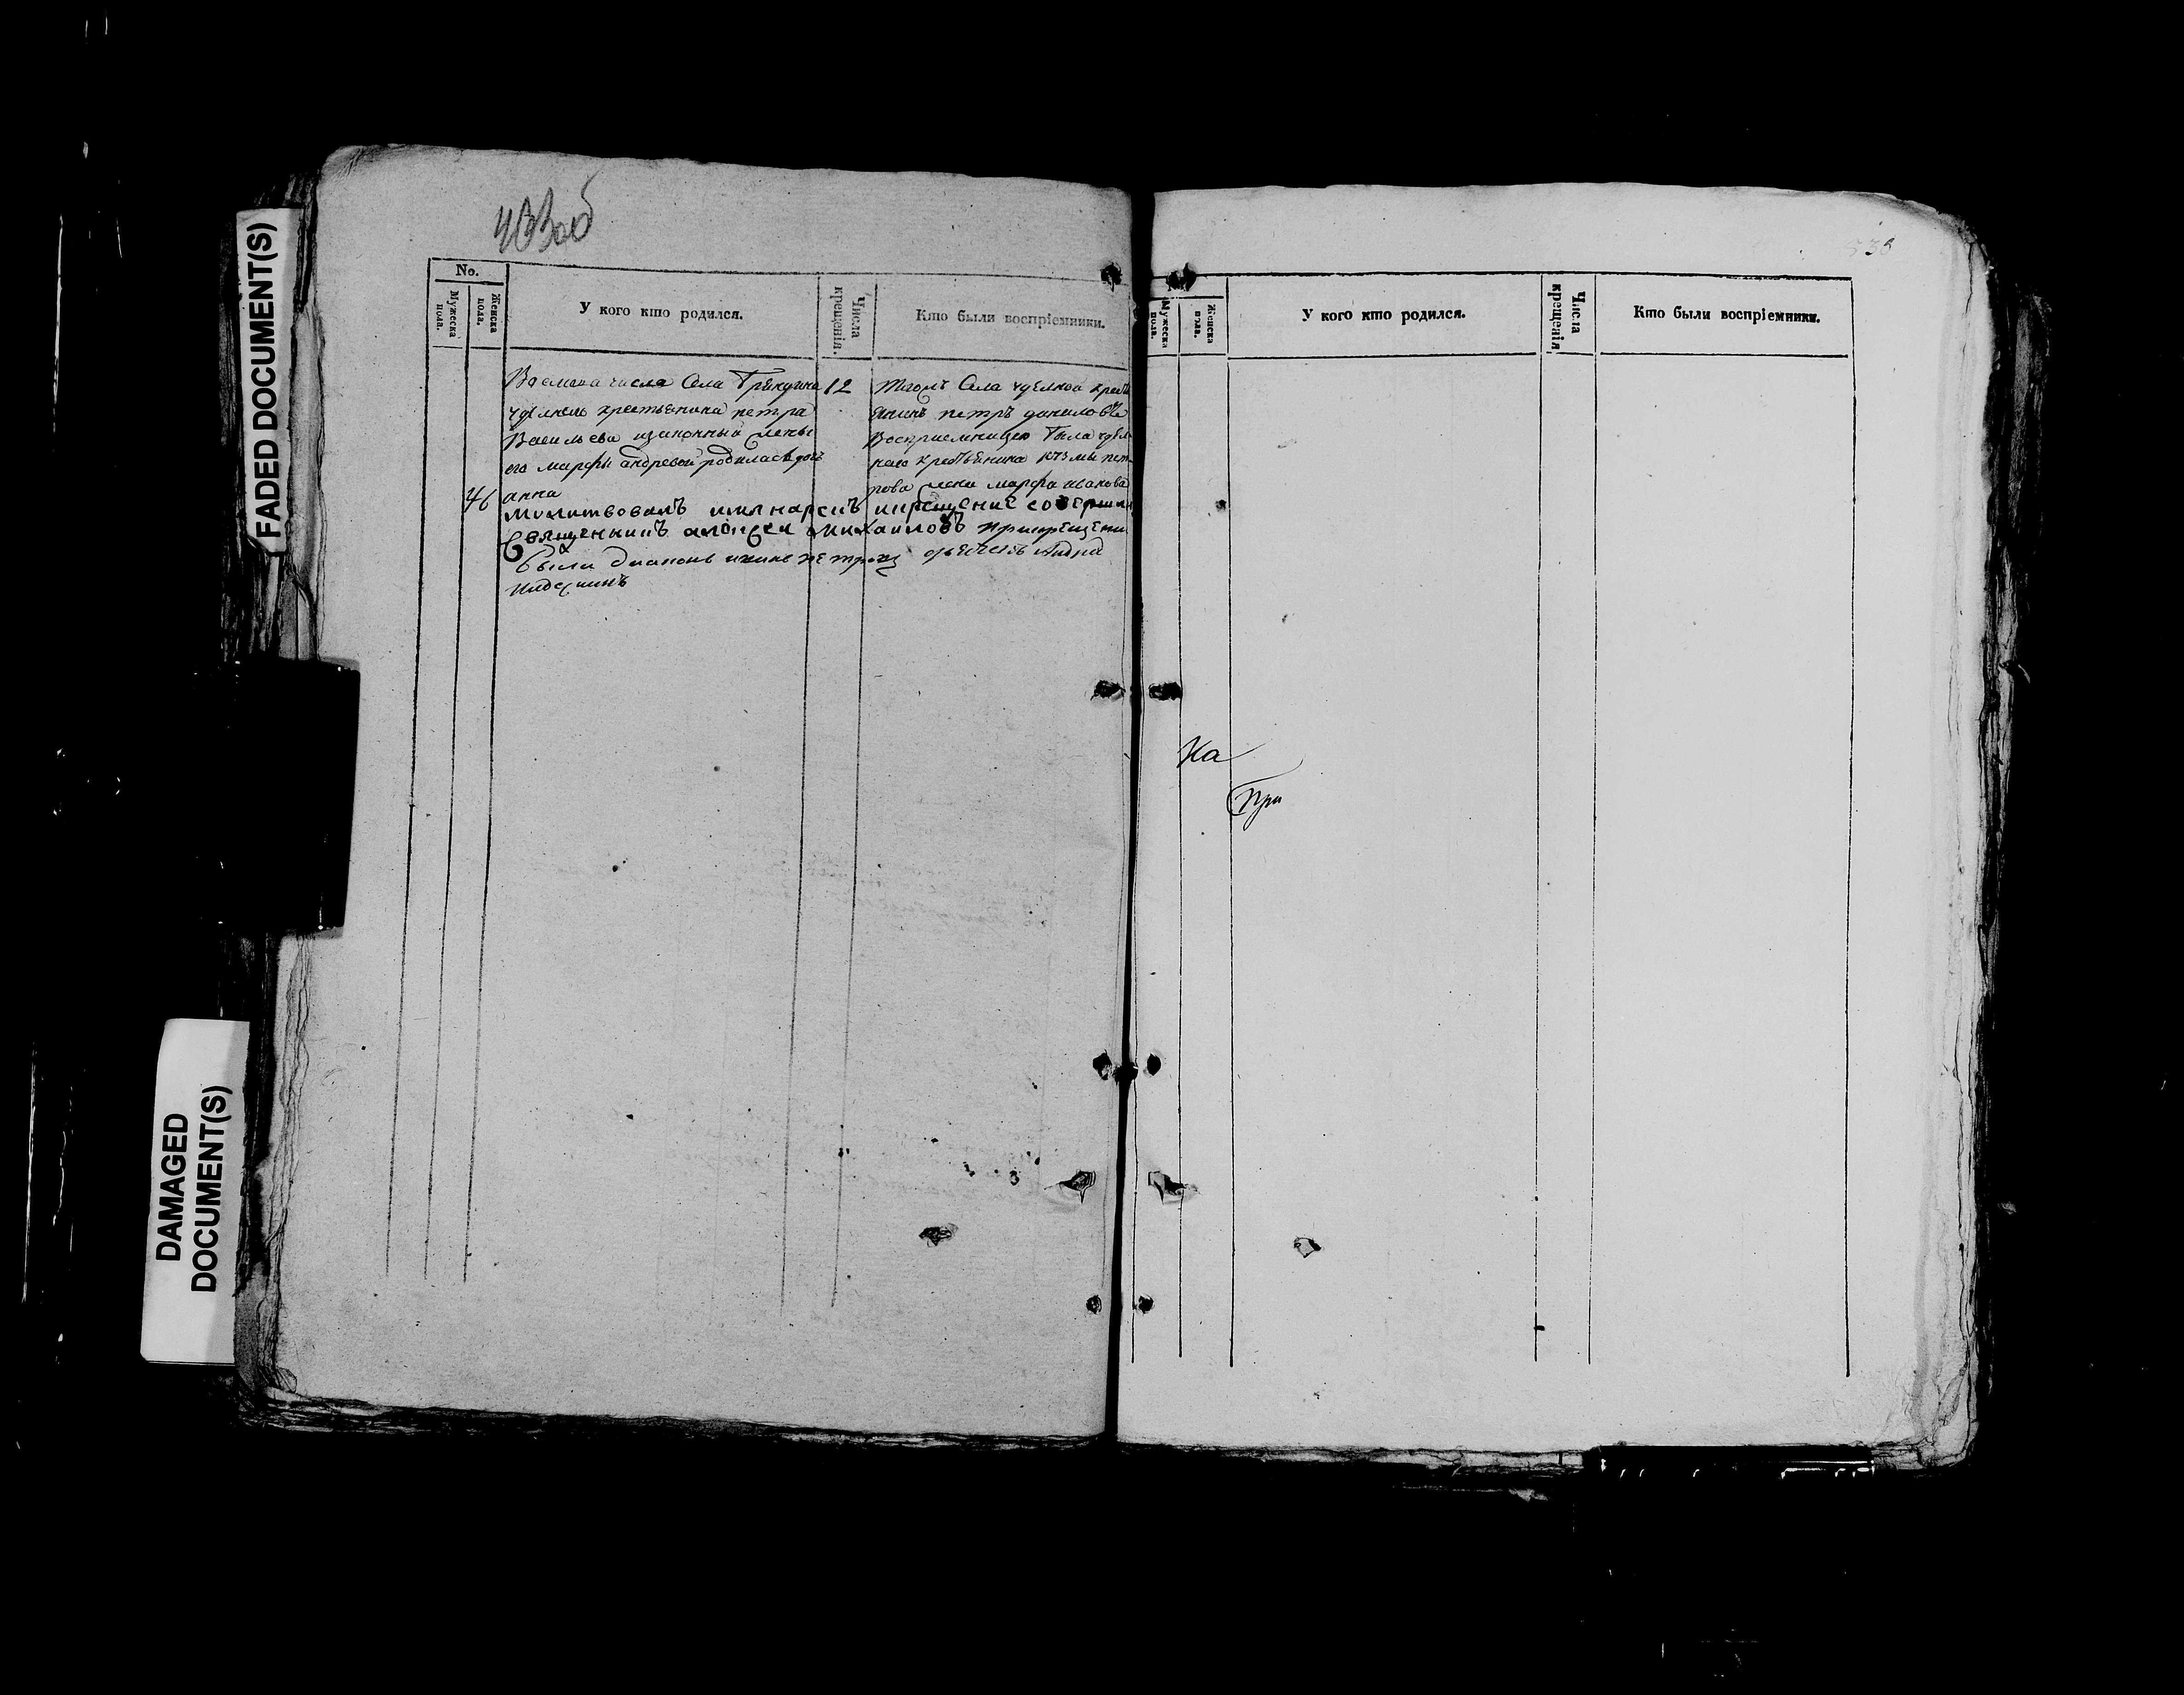 FADED DOCUMENT(S)
DAMAGED
DOCUMENT(S)
433об
No.
Мужеска пола.
Женска пола.
У кого кто родился.
Числа крещенія.
Кто были воспріемники.
числа Села 12
удельного крестьянина петра
Васильева изаконный жены
его марфы андревой родилась дочь
46 анна
тогожъ Села уделной крест
янинъ петръ даниловъ
Восприемницею была удел
наго крестьянина кузмы пет
рова жена марфа иванова
молитвовалъ инарекъ икрещение совершил
Священникъ алексей михайловъ прикрещении
были диаконъ
Мужеска пола.
Женска пола.
У кого кто родился.
Числа крещенія
Кто были воспріемники.
На
При